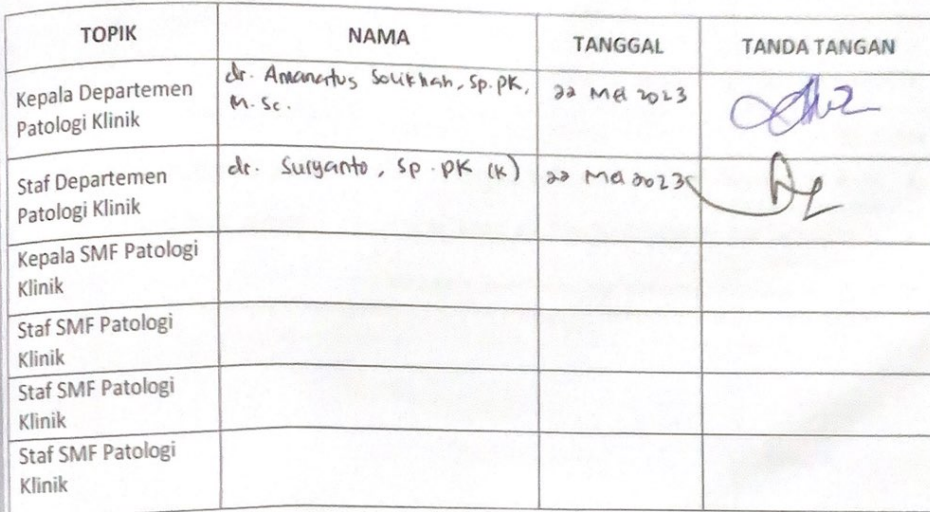 TOPIK NAMA TANGGAL TANDA TANGAN
Kepala Departemen
Patologi Klinik
dr. Amanatus Solikhah, Sp.PK,
M.Sc.
22 Mei 2023
Staf Departemen
Patologi Klinik
dr. Suryanto, Sp.PK (K)
22 Mei 2023
Kepala SMF Patologi
Klinik
Staf SMF Patologi
Klinik
Staf SMF Patologi
Klinik
Staf SMF Patologi
Klinik